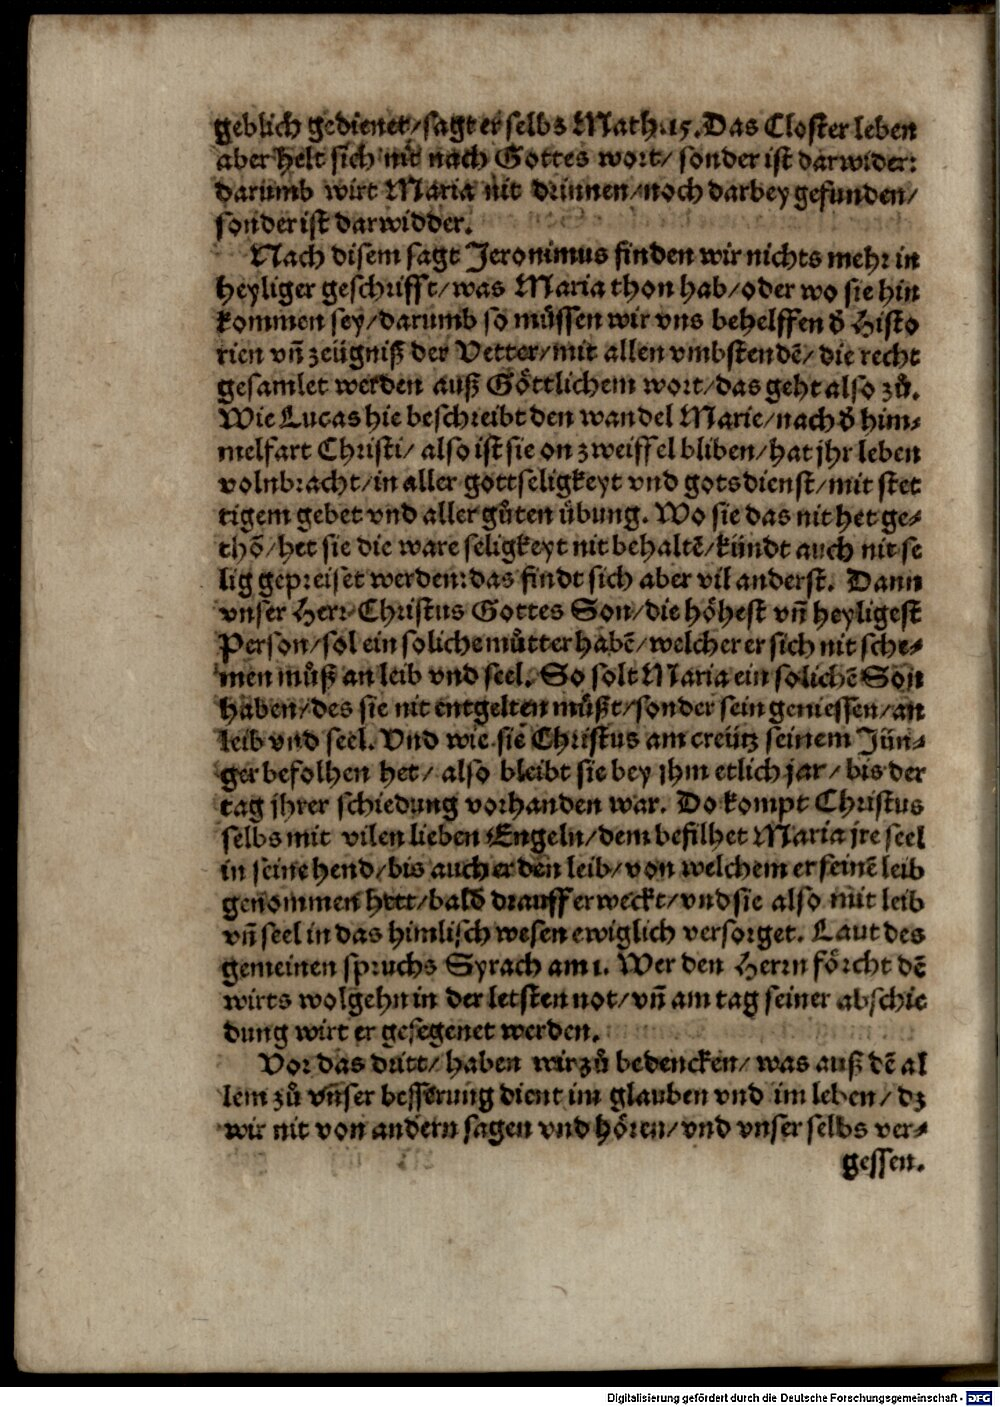 geblich gedienet/sagt er selbs Math.15. Das Closter leben
aber helt sich nit nach Gottes wort/ sonder ist darwider:
darumb wirt Maria nit drinnen/noch darbey gefunden/
sonder ist darwidder.
Nach disem sagt Jeronimus finden wir nichts mehr in
heyliger geschrifft/was Maria thon hab/oder wo sie hin
kommen sey/darumb so müssen wir vns behelffen d̕ Histo
rien vn̄ zeügniß der Vetter/mit allen vmbstendē/ die recht
gesamlet werden auß Göttlichem wort/das geht also zů.
Wie Lucas hie beschreibt den wandel Marie/nach d̕ him⸗
melfart Christi/ also ist sie on zweiffel bliben/hat jhr leben
volnbracht/in aller gottseligkeyt vnd gotsdienst/mit stet
tigem gebet vnd aller gůten übung. Wo sie das nit het ge⸗
thō/het sie die ware seligkeyt nit behaltē/kündt auch nit se
lig gepreiset werden:das findt sich aber vil anderst. Dann
vnser Herr Christus Gottes Son/die höhest vn̄ heyligest
Person/sol ein soliche můtter habē/welcher er sich nit sche⸗
men můß an leib vnd seel. So solt Maria ein solichē Son
haben/des sie nit entgelten můßt/sonder sein geniessen/an
leib vnd seel. Vnd wie sie Christus am creütz seinem Jün⸗
ger befolhen het/ also bleibt sie bey jhm etlich jar/ bis der
tag jhrer schiedung vorhanden war. Do kompt Christus
selbs mit vilen lieben Engeln/dem befilhet Maria jre seel
in seine hend/bis auch er den leib/von welchem er seinē leib
genommen hett/bald drauff erweckt/vnd sie also mit leib
vn̄ seel in das himlisch wesen ewiglich versorget. Laut des
gemeinen spruchs Syrach am 1. Wer den Herrn förcht dē
wirts wolgehn in der letsten not/vn̄ am tag seiner abschie
dung wirt er gesegenet werden.
Vor das dritt/haben wir zů bedencken/was auß dē al
lem zů vnser besserung dient im glauben vnd im leben/dz
wir nit von andern sagen vnd hören/vnd vnser selbs ver⸗
gessen.
Digitalisierung gefördert durch die Deutsche Forschungsgemeinschaft - DFG